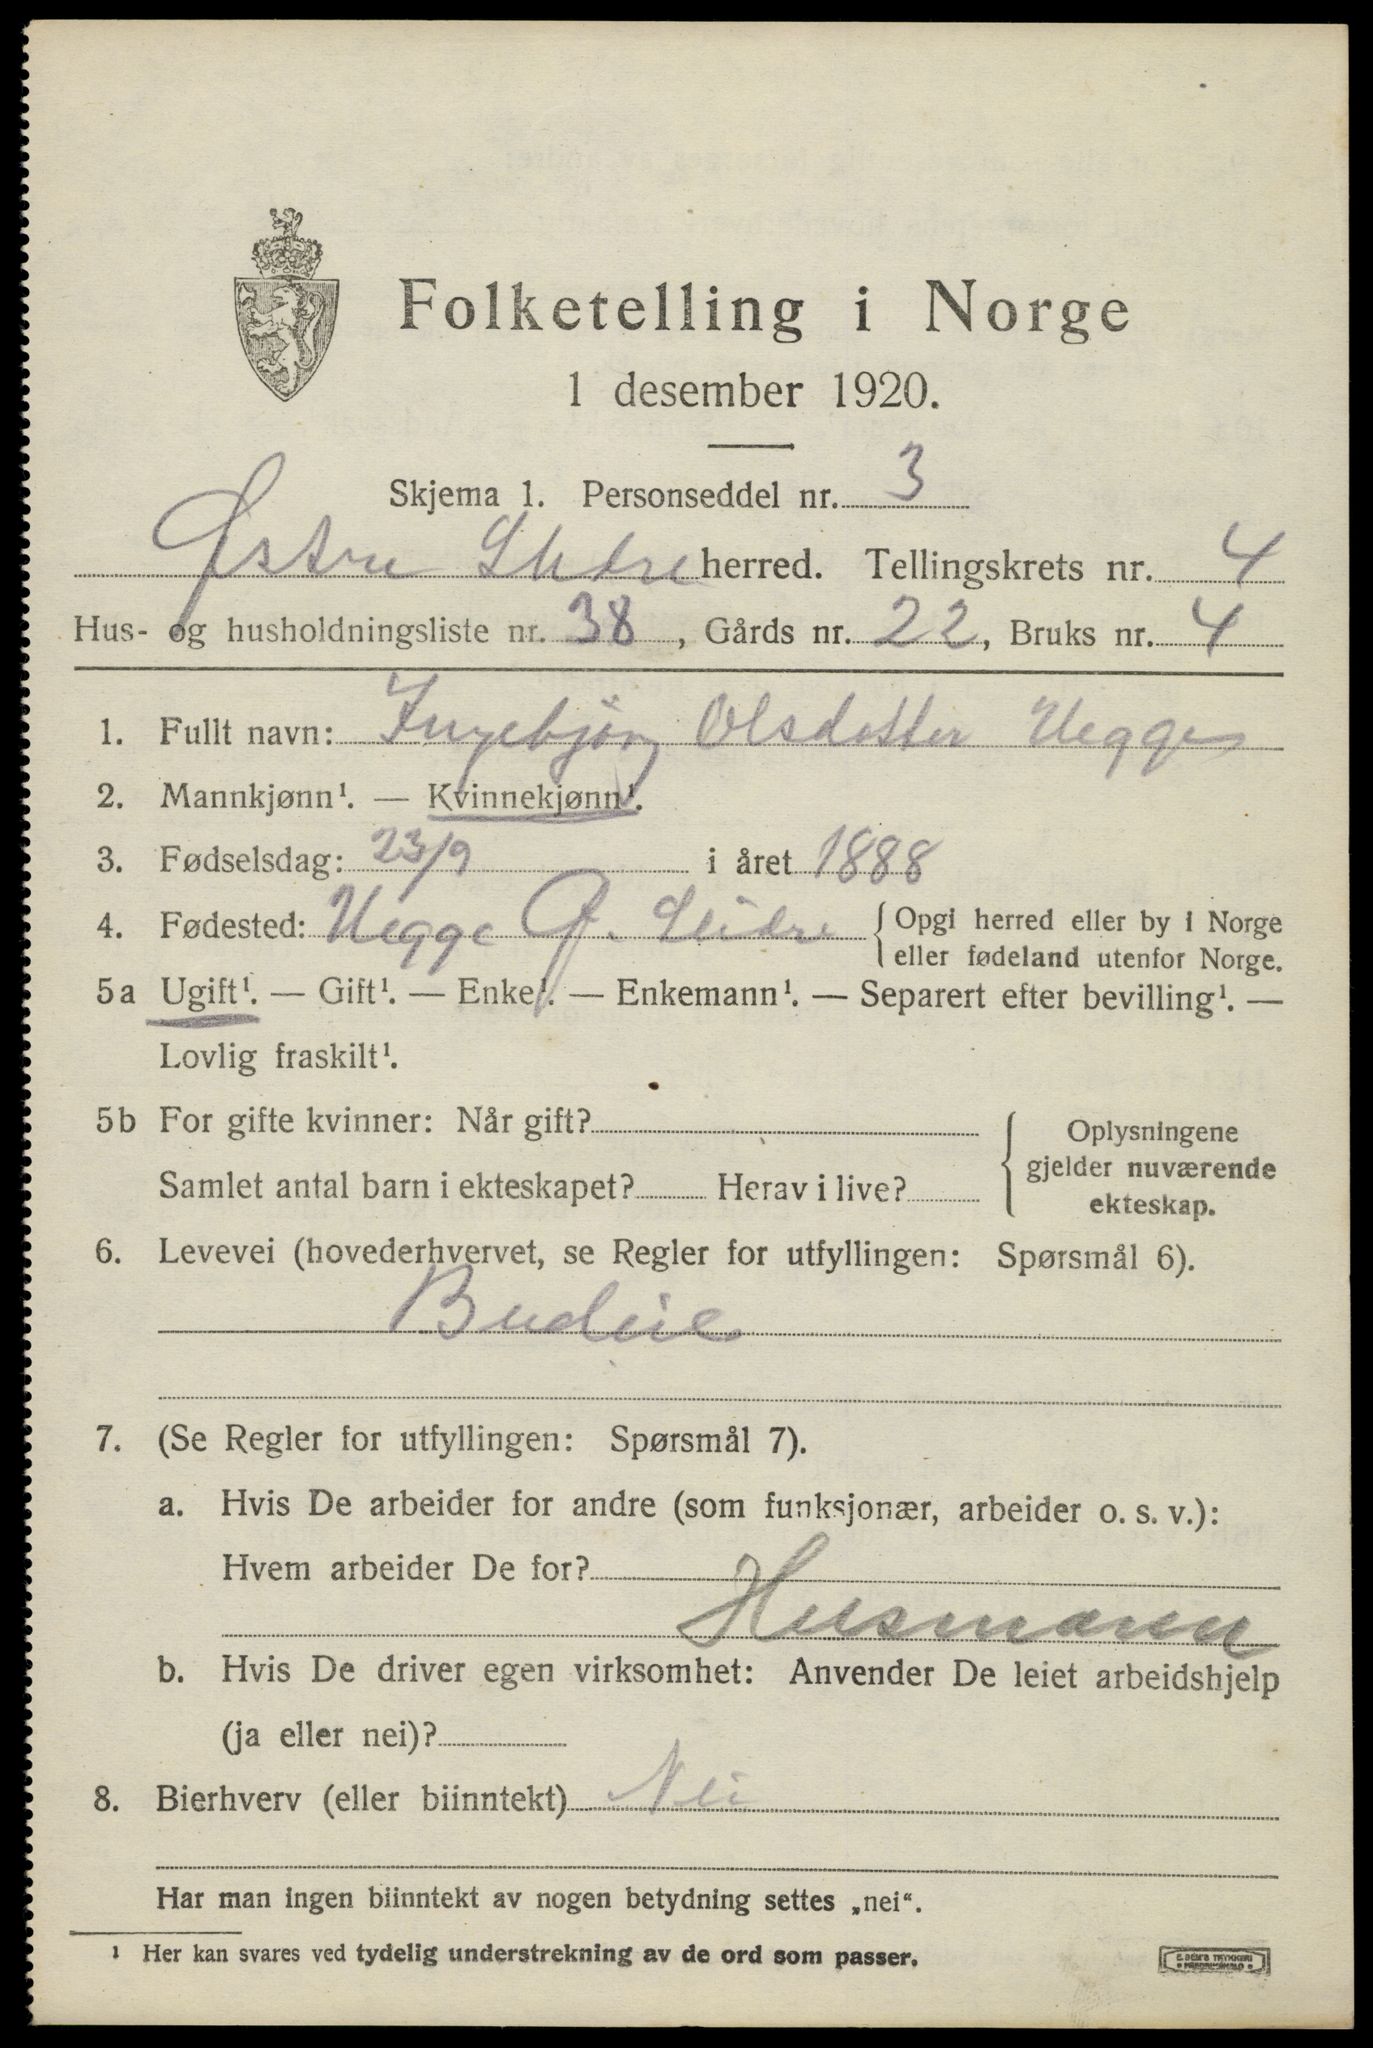 Folketelling i Norge
1 desember 1920.
Skjema 1. Personseddel nr. 3
Østre Slidre herred. Tellingskrets nr. 4
Hus- og husholdningsliste nr. 38, Gårds nr. 22, Bruks nr. 4
1. Fullt navn: Ingebjörg Olsdotter Hegge
2. Mannkjønn¹. — Kvinnekjønn¹.
3. Fødselsdag: 23/9 i året 1888
4. Fødested: Hegge Ø. Slidre {Opgi herred eller by i Norge
eller fødeland utenfor Norge.
5a Ugift¹. — Gift¹. — Enke¹. — Enkemann¹. — Separert efter bevilling¹. —
Lovlig fraskilt¹.
5b For gifte kvinner: Når gift?
Samlet antal barn i ekteskapet? Herav i live?
Oplysningene
gjelder nuværende
ekteskap.
6. Levevei (hovederhvervet, se Regler for utfyllingen: Spørsmål 6).
Budeie
7. (Se Regler for utfyllingen: Spørsmål 7).
a. Hvis De arbeider for andre (som funksjonær, arbeider o. s. v.):
Hvem arbeider De for?
Husmann
b. Hvis De driver egen virksomhet: Anvender De leiet arbeidshjelp
(ja eller nei)?
8. Bierhverv (eller biinntekt) Nei
Har man ingen biinntekt av nogen betydning settes „nei“.
¹ Her kan svares ved tydelig understrekning av de ord som passer.